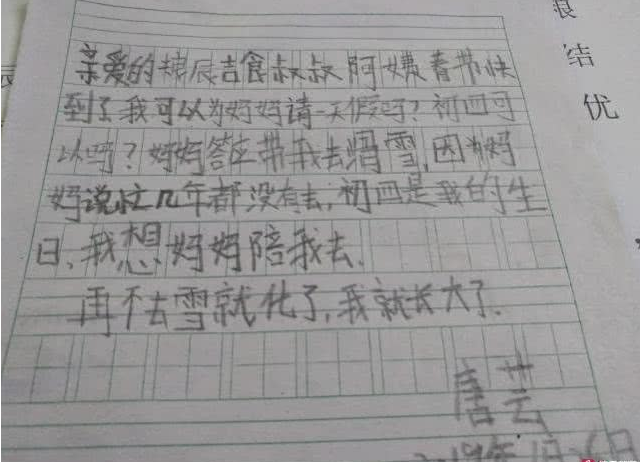 亲爱的棣辰吉食叔叔阿姨春节快
到了我可以为妈妈请一天假吗?初四可
以吗?妈妈答应带我去滑雪,因为妈
妈说忙几年都没有去,初四是我的生
日,我想妈妈陪我去.
再不去雪就化了,我就长大了.
唐芸
结
优